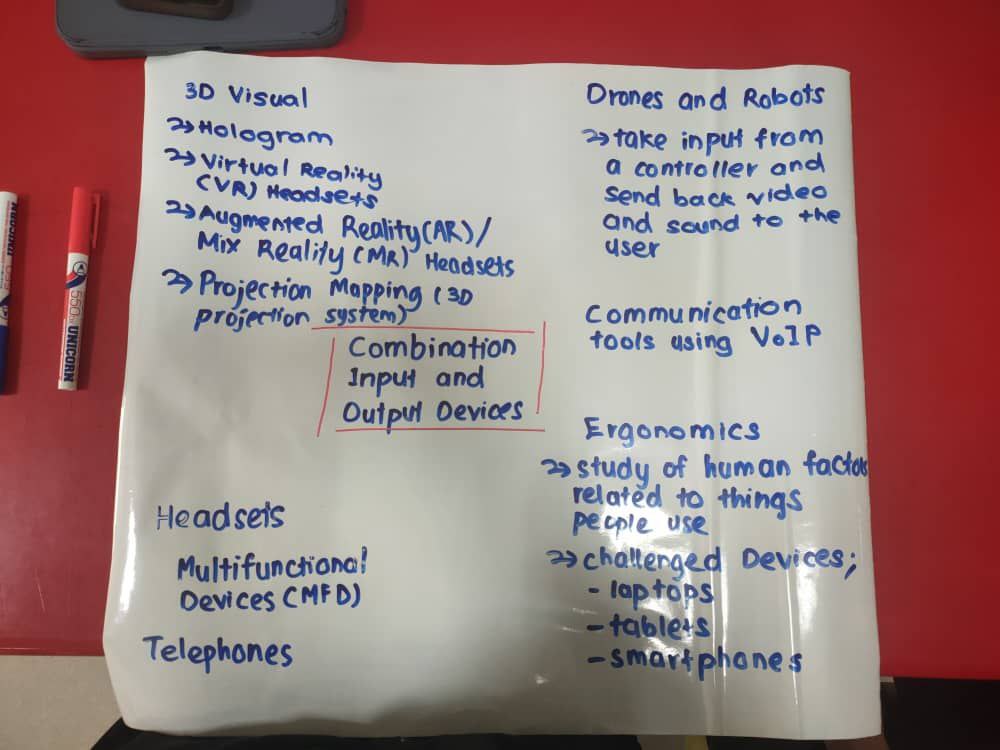 3D Visual
→ Hologram
→ Virtual Reality
(VR) Headsets
→ Augmented Reality (AR) /
Mix Reality (MR) Headsets
→ Projection Mapping (3D
projection system)
Combination
Input and
Output Devices
Headsets
Multifunctional
Devices (MFD)
Telephones
Drones and Robots
→ take input from
a controller and
send back video
and sound to the
user
Communication
tools using VoIP
Ergonomics
→ study of human factors
related to things
people use
→ challenged Devices;
- laptops
- tablets
- smartphones
550
UNICORN